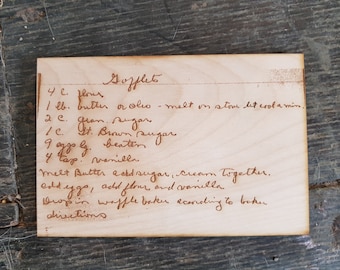 Gofflets
4 C flour
1 lb. butter or oleo - melt on stove let cool a min.
2 C gran. sugar
1 C Lt. Brown sugar
9 eggs beaten
4 tsp vanilla
Melt Butter add sugar, cream together,
add eggs, add flour and vanilla
Drop in waffle baker according to baker
directions